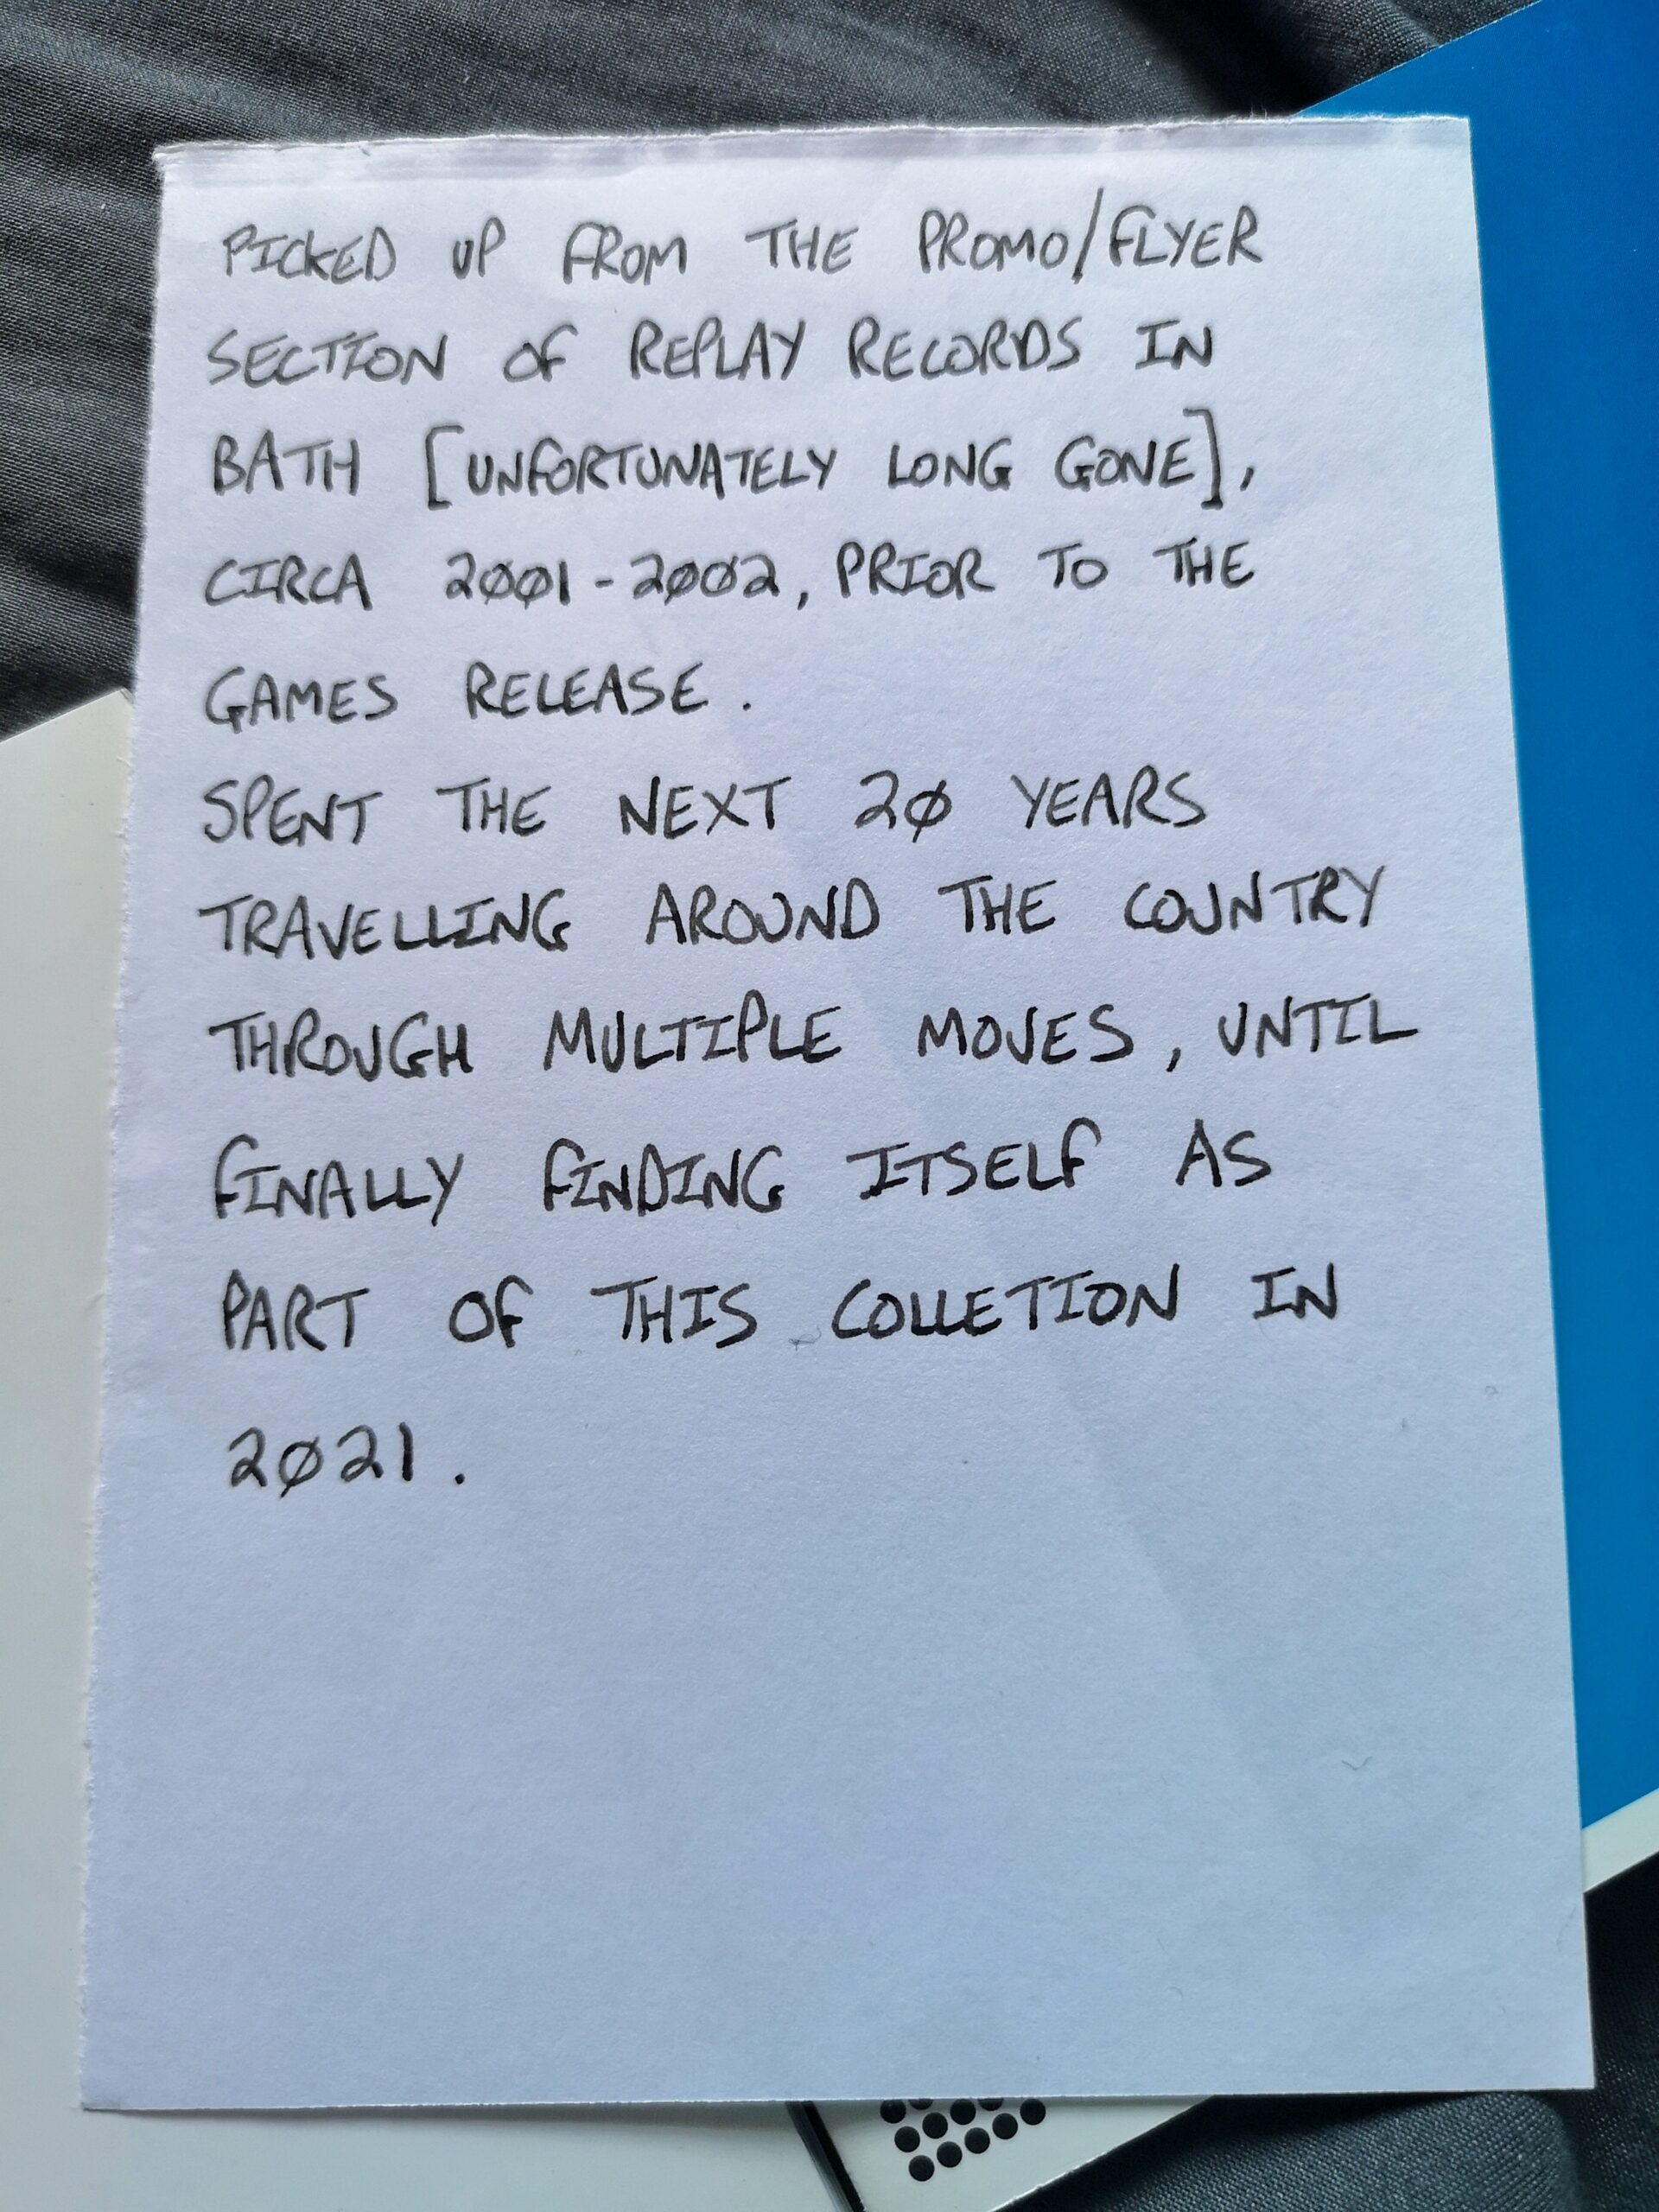 PICKED UP FROM THE PROMO/FLYER
SECTION OF REPLAY RECORDS IN
BATH [UNFORTUNATELY LONG GONE],
CIRCA 2001-2002, PRIOR TO THE
GAMES RELEASE.
SPENT THE NEXT 20 YEARS
TRAVELLING AROUND THE COUNTRY
THROUGH MULTIPLE MOVES, UNTIL
FINALLY FINDING ITSELF AS
PART OF THIS COLLETION IN
2021.